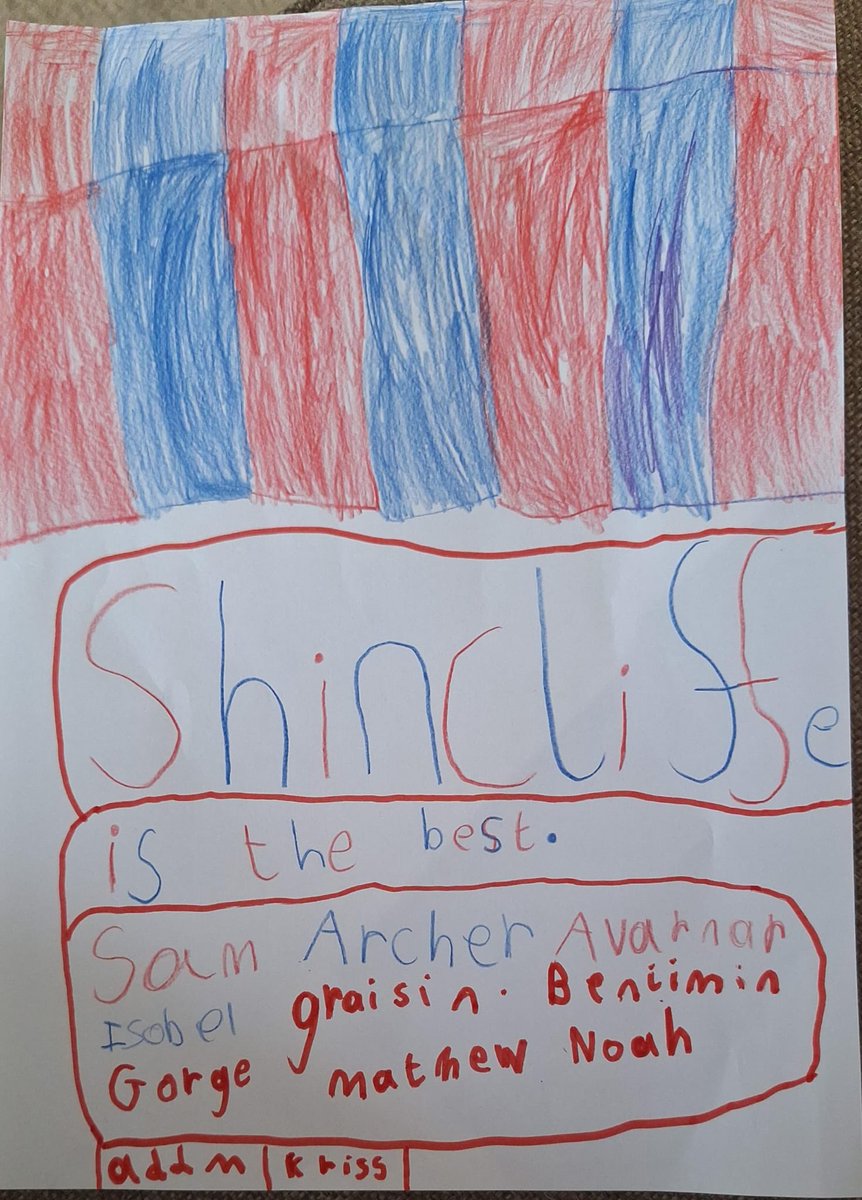 Shincliffe
is the best.
Sam Archer Avarnar
Isobel graisin. Beniimin
Gorge mathew Noah
addm kriss